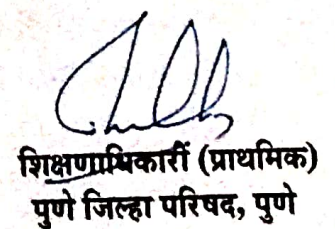 शिक्षणाधिकारीं (प्राथमिक)
पुणे जिल्हा परिषद, पुणे